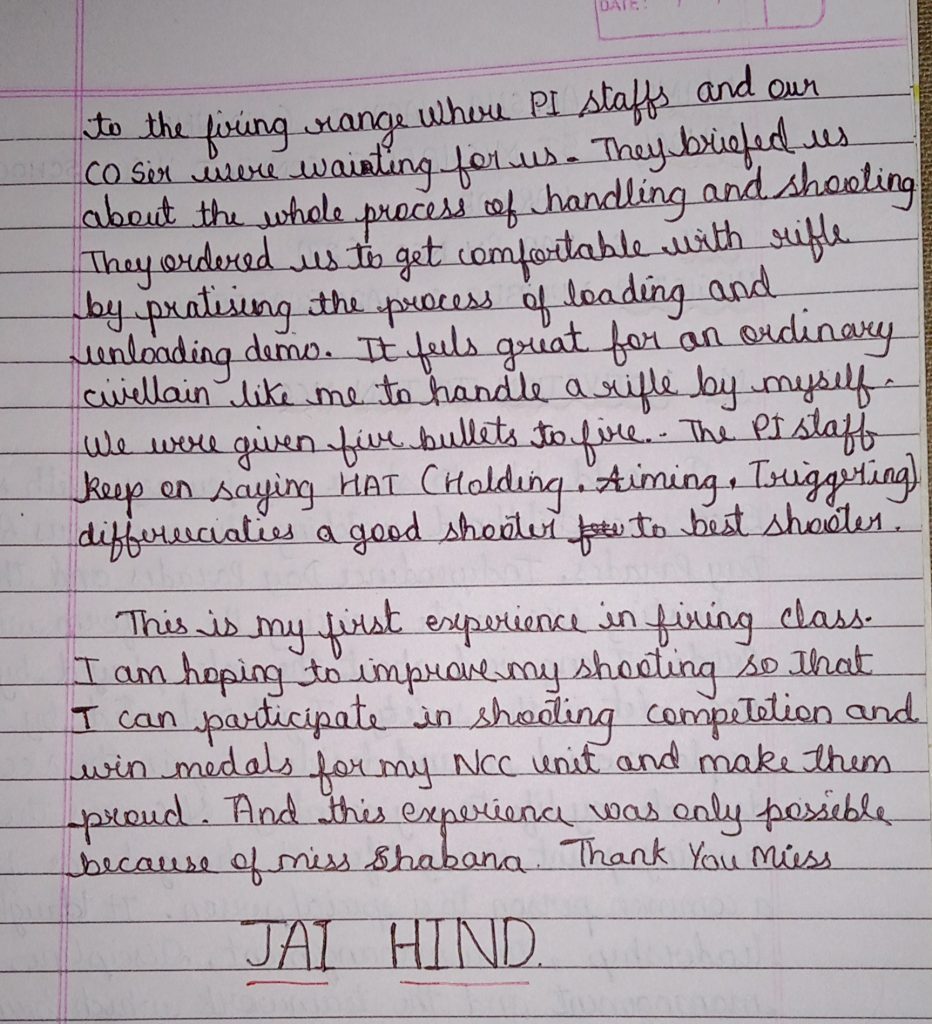 DATE:
to the firing range where PI staffs and our
CO Sir were wainting for us. They briefed us
about the whole process of handling and shooting
They ordered us to get comfortable with rifle
by pratising the process of loading and
unloading demo. It feels great for an ordinary
civellain like me to handle a rifle by myself.
We were given five bullets to fire.. The PI staff
keep on saying HAT (Holding, Aiming, Triggering)
differeciaties a good shooter to best shooter.
This is my first experience in firing class.
I am hoping to improve my shooting so that
I can participate in shooting competetion and
win medals for my NCC unit and make them
proud. And this experience was only possible
because of miss Shabana Thank You Miess
JAI HIND.